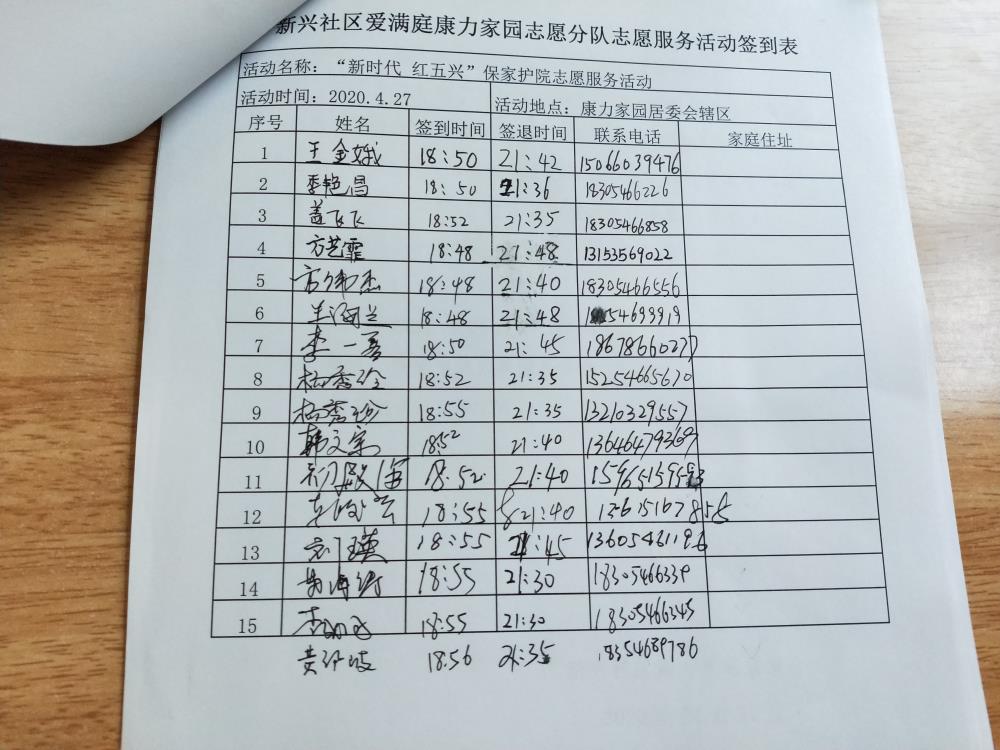 新兴社区爱满庭康力家园志愿分队志愿服务活动签到表
活动名称：“新时代 红五兴”保家护院志愿服务活动
活动时间：2020.4.27 活动地点：康力家园居委会辖区
序号 姓名 签到时间 签退时间 联系电话 家庭住址
1 王金娥 18:50 21:42 15066039476
2 季艳昌 18:50 21:36 18305466226
3 盖飞飞 18:52 21:35 18305466858
4 方艺霏 18:48 21:48 13153569022
5 18:48 21:40 18305466556
6 18:48 21:48
7 李一善 18:50 21:45 18678660277
8 杨秀玲 18:52 21:35 15254665670
9 杨秀珍 18:55 21:35 13210329557
10 韩文宗 18:52 21:40 13646479369
11 18:52 21:40
12 18:55 21:40
13 18:55 21:45 13605461196
14 18:55 21:30 18305466339
15 18:55 21:30 18305466345
18:56 21:35 18354689786